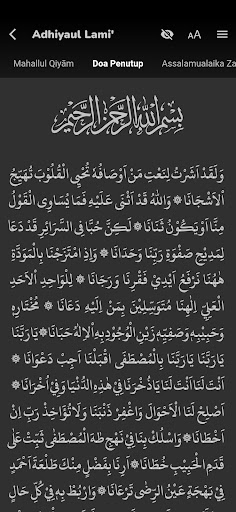 Adhiyaul Lami'
AA
Mahallul Qiyām Doa Penutup Assalamualaika Za
بِسْمِ اللهِ الرَّحْمٰنِ الرَّحِيْمِ
وَلَقَدْ اَشَرْتُ لِنَعْتِ مَنْ اَوْصَافُهُ تُحْيِي الْقُلُوْبَ تُهَيِّجُ
الْاَشْجَانَا ۞ وَاللهُ قَدْ اَثْنٰى عَلَيْهِ فَمَا يُسَاوِي الْقَوْلُ
مِنَّا اَوْ يَكُوْنُ ثَنَانَا ۞ لٰكِنَّ حُبًّا فِي السَّرَائِرِ قَدْ دَعَا
لِمَدِيْحِ صَفْوَةِ رَبِّنَا وَحَدَانَا ۞ وَاِذِ امْتَزَجْنَا بِالْمَوَدَّةِ
هٰهُنَا نَرْفَعُ اَيْدِيْ فَقْرِنَا وَرَجَانَا ۞ لِلْوَاحِدِ الْاَحَدِ
الْعَلِيِّ اِلٰهِنَا مُتَوَسِّلِيْنَ بِمَنْ اِلَيْهِ دَعَانَا ۞ مُخْتَارِهِ
وَحَبِيْبِهِ وَصَفِيِّهِ زَيْنِ الْوُجُوْدِ بِهِ الْاِلٰهُ حَبَانَا ۞ يَا رَبَّنَا
يَا رَبَّنَا يَا رَبَّنَا بِالْمُصْطَفٰى اقْبَلْنَا اَجِبْ دَعْوَانَا ۞
اَنْتَ لَنَا اَنْتَ لَنَا يَا ذُخْرَنَا فِيْ هٰذِهِ الدُّنْيَا وَفِيْ اُخْرَانَا ۞
اَصْلِحْ لَنَا الْاَحْوَالَ وَاغْفِرْ ذَنْبَنَا وَلَا تُؤَاخِذْ رَبِّ اِنْ
اَخْطَانَا ۞ وَاسْلُكْ بِنَا فِيْ نَهْجِ طٰهَ الْمُصْطَفٰى ثَبِّتْ عَلٰى
قَدَمِ الْحَبِيْبِ خُطَانَا ۞ اَرِنَا بِفَضْلٍ مِنْكَ طَلْعَةَ اَحْمَدٍ
فِيْ بَهْجَةٍ عَيْنُ الرِّضٰى تَرْعَانَا ۞ وَارْبُطْ بِهِ فِيْ كُلِّ حَالٍ